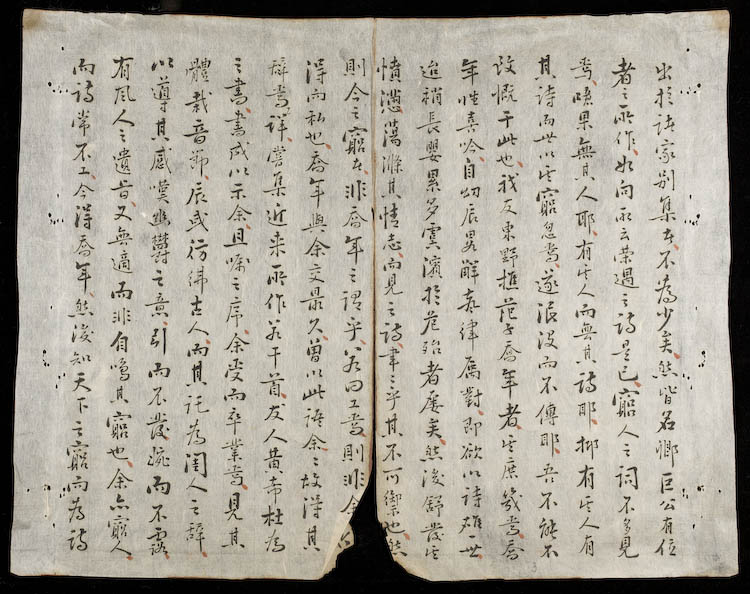 出於諸家別集者不為少矣然皆名卿巨公有位
者之所作如向所云榮遇之詩是已窮人之詞不多見
焉噫果無其人耶有其人而無其詩耶抑有其人有
其詩而世以其窮忽焉遂浪沒而不傳耶吾不能不
致慨于此也我友東野樵范子喬年者其庶幾焉喬
年性喜吟自幼辰畧解律厲對即欲以詩雄一世
迨稍長嬰累多虞濱於危殆者屢矣然後舒發其
憤懣蕩滌其情志而見之詩韋〻乎其不可禦也然
則今之窮者非喬年之謂乎若曰工焉則非余
得而私也喬年與余交最久曾以此語余〻故得其
癖焉詳嘗集近来所作若干首友人黃希杜為
之書書成以示余且囑之序余受而卒業焉見其
體裁音節辰或彷彿古人而其託為閨人之辭
以導其感嘆幽鬱之意引而不發婉而不露
有風人之遺旨又無適而非自鳴其窮也余亦窮人
而詩常不工今得喬年然後知天下之窮而為詩